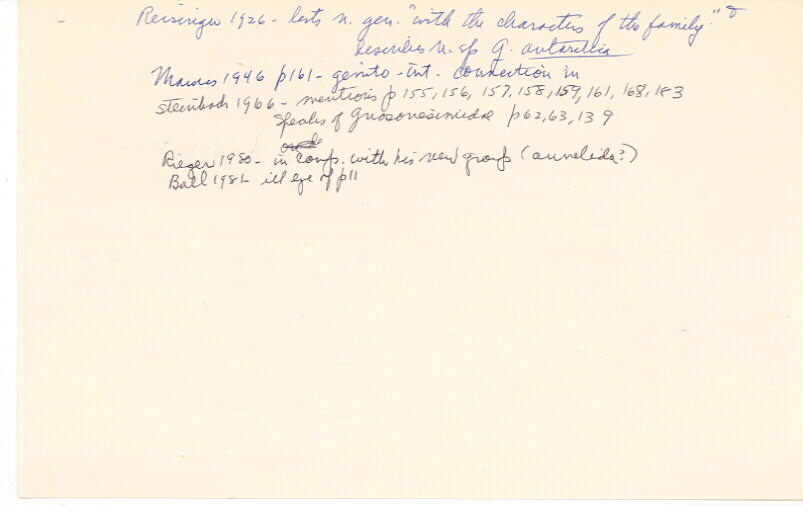 Reisinger 1926 - lists n. gen. "with the characters of the family." &
describes n. sp G. antarctica
Marcus 1946 p161 - genito-int. connection in
Steinbock 1966 - mentions p 155, 156, 157, 158, 159, 161, 168, 183
speaks of Gnosonesimidae p62, 63, 139
Rieger 1980 - in comp. with his new group (annelida?)
Ball 1981 - ill eye of p11